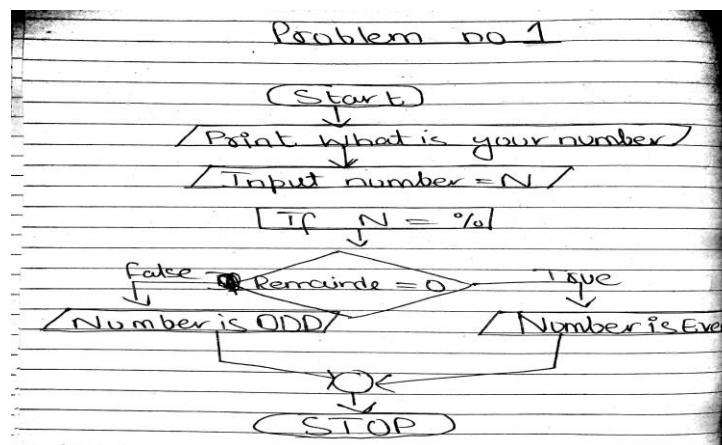 Problem no 1
Start
Print What is your number
Input number = N
If N = %
Remainde = 0
False
True
Number is ODD
Number is Eve
STOP